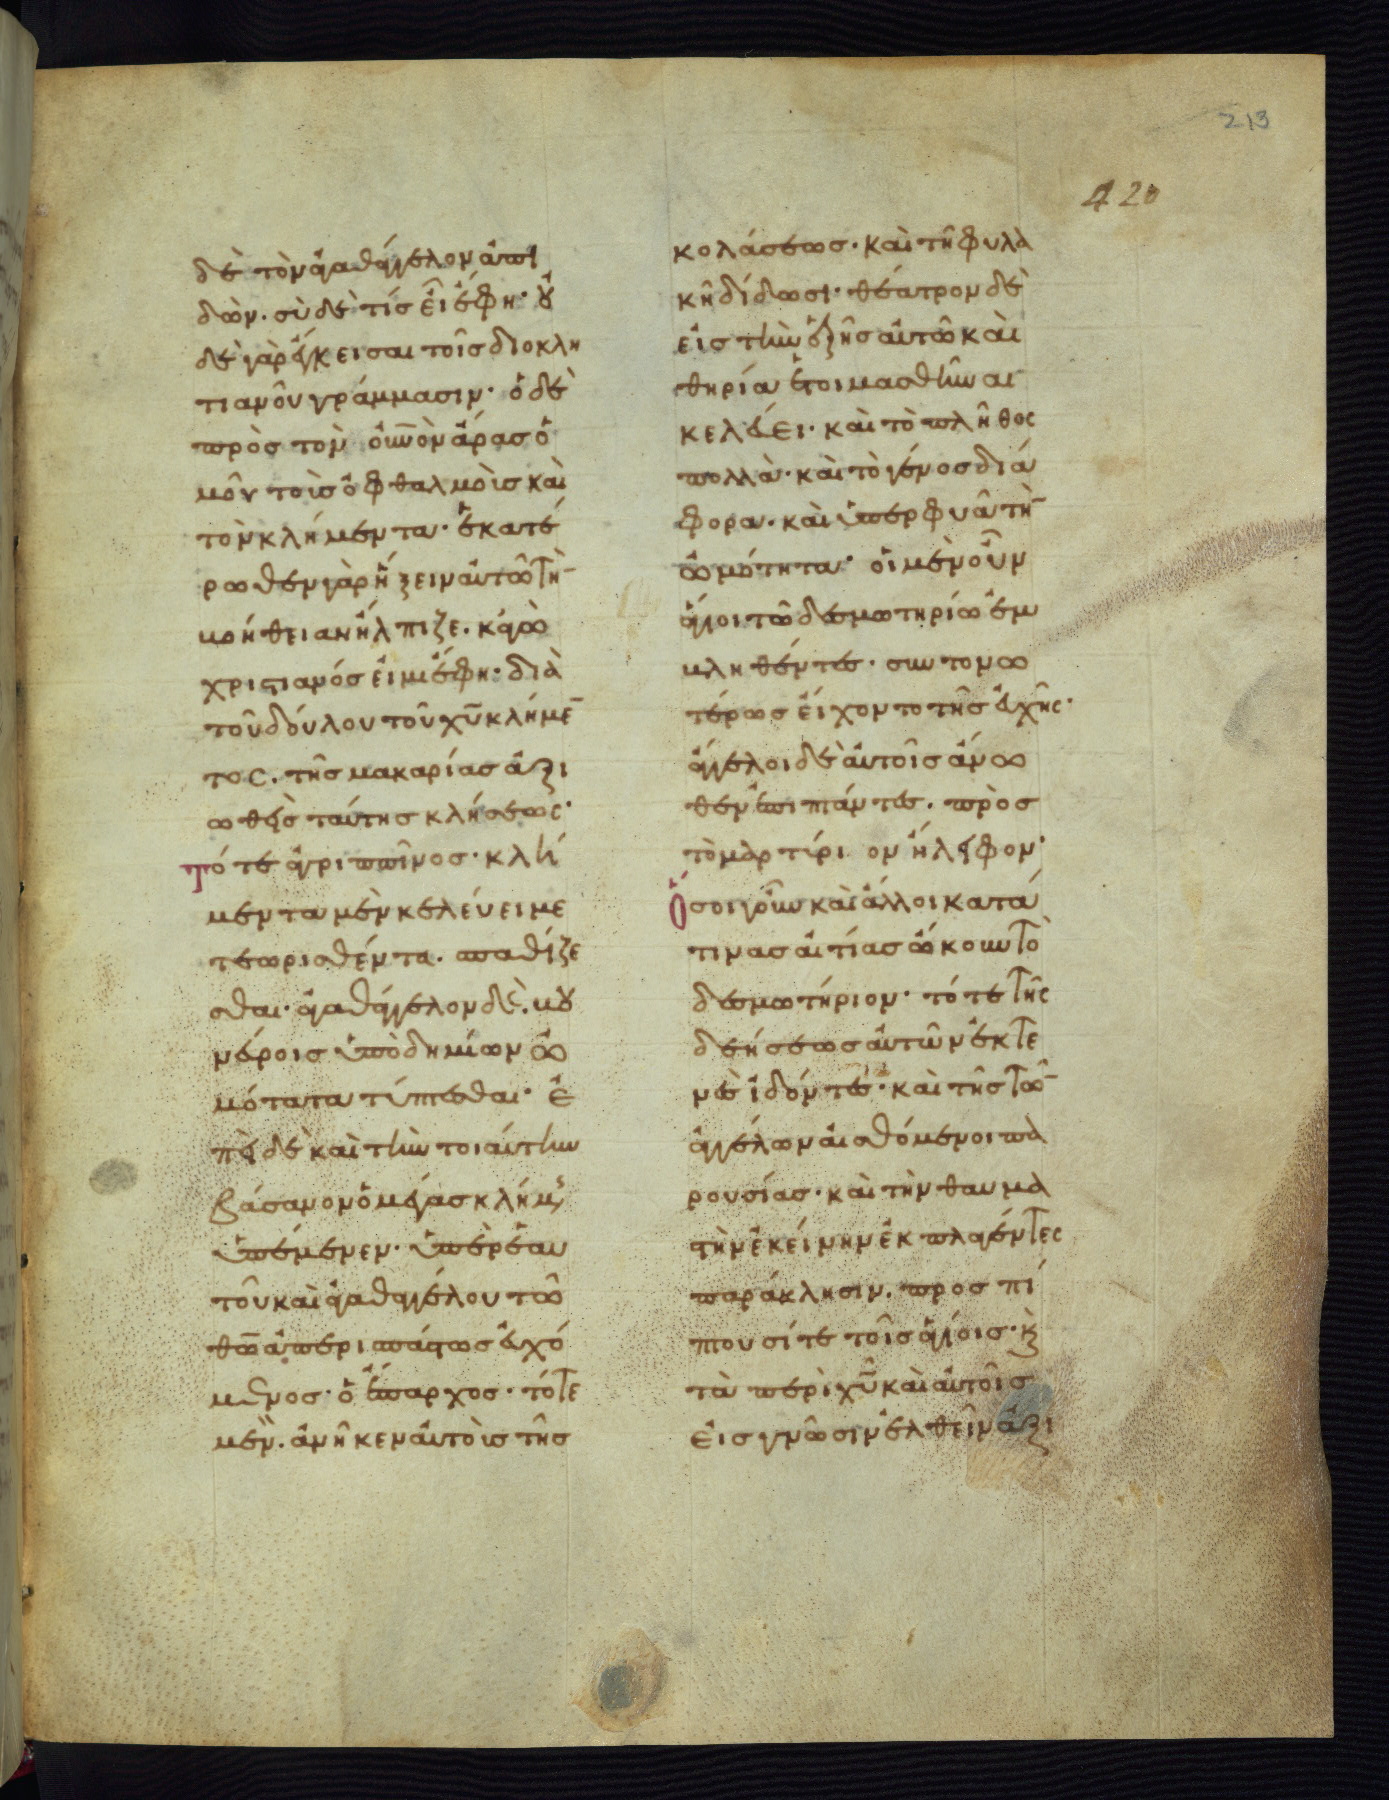 213
420
δὲ τὸν ἀγαθάγγελον ἀπι
δὼν· σὺ δὲ τίς εἶ ἔφη· οὐ
δὲ γὰρ ἔγκεισαι τοῖς διοκλη
τιανοῦ γράμμασιν· ὁ δὲ
πρὸς τὸν οὐνον ἄρας ὁ
μοῦ τοῖς ὀφθαλμοῖς καὶ
τὸν κλήμεντα· ἑκατέ
ρωθεν γὰρ ἥξειν αὐτῶ τὴ̄
βοήθειαν ἤλπιζε· κἀγὼ
χριστιανός εἰμι ἔφη· διὰ
τοῦ δούλου τοῦ χ̅υ̅ κλήμε̄
τος· τῆς μακαρίας ἀξι
ωθεὶς ταύτης κλήσεως·
Τότε ἀγριππῖνος· κλή
μεντα μὲν κελεύει με
τεωρισθέντα· σπαθίζε
σθαι· ἀγαθάγγελον δὲ· βου
νεύροις ὑπὸ δημίων ὠ
μότατα τύπτεσθαι· ἐ
πεὶ δὲ καὶ τὴν τοιαύτην
βάσανον ὁ μέγας κλήμης
ὑπέμενεν· ὑπὲρ ἑαυ
τοῦ καὶ ἀγαθαγγέλου τῶ
θ̅ω̅ ἀπερισπάστως εὐχό
μενος· ὁ ἔπαρχος· τότε
μὲν· ἀνῆκεν αὐτοῖς τῆς
κολάσεως· καὶ τῆ φυλα
κῆ δίδωσι· θέατρον δὲ
εἰς τὴν ἑξῆς αὐτῶ καὶ
θηρία ἑτοιμασθῆναι
κελεύει· καὶ τὸ πλῆθος
πολλὰ· καὶ τὸ γένος διά
φορα· καὶ ὑπερφυᾶ τὴ̄
ὠμότητα· οἱ μὲν οὖν
ἅγιοι τῶ δεσμωτηρίω ἐμ
βληθέντες· συντονω
τέρως εἴχοντο τῆς εὐχῆς·
ἄγγελοι δὲ αὐτοῖς ἄνω
θεν ἐπιπτάντες· πρὸς
τὸ μαρτύριον ἤλειφον·
Ὅσοι γοῦν καὶ ἄλλοι κατά
τινας αἰτίας ᾤκουν τὸ
δεσμωτήριον· τό τε τῆς
δεήσεως αὐτῶν ἐκτε
νὲς ἰδόντες· καὶ τῆς τῶ̄
ἀγγέλων αἰσθόμενοι πα
ρουσίας· καὶ τὴν θαυμα
στὴν ἐκείνην ἐκπλαγέντες
παράκλησιν· προσπί
πτουσί τε τοῖς ἁγίοις· κ̀
τὰ περὶ χ̅υ̅ καὶ αὐτοῖς
εἰς γνῶσιν ἐλθεῖν ἀξι